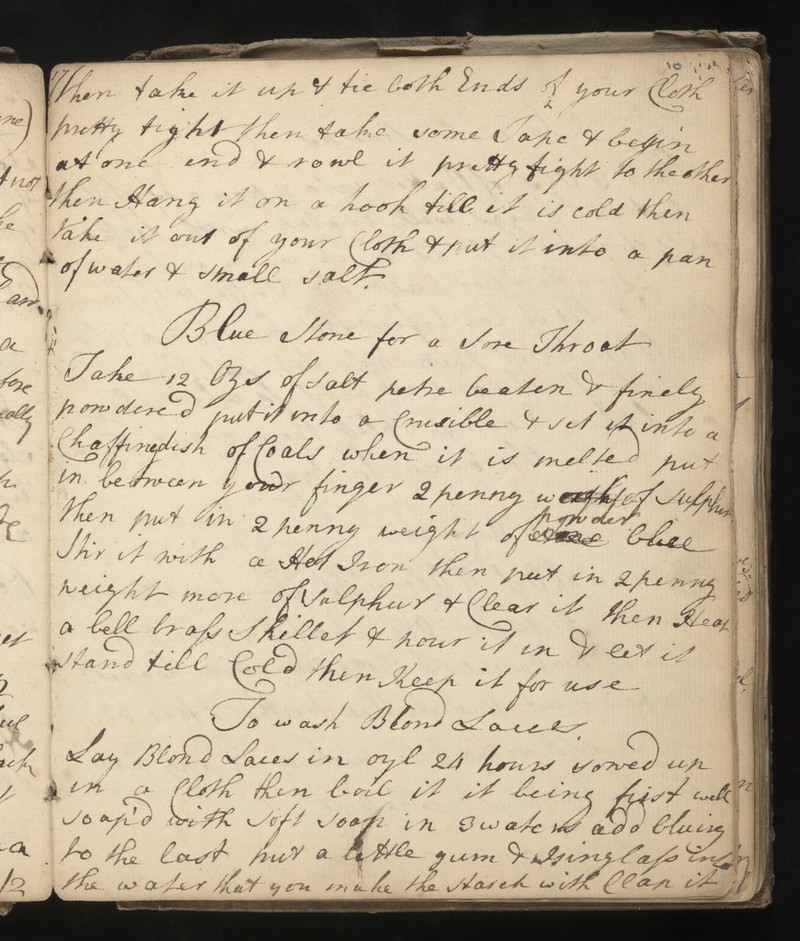 ne)
t not
10
then take it up & tie both Ends of your Cloth
pretty tight then take some Tape & begin
at one end & rowl it pretty tight to the other
then Hang it on a hook till it is cold then
take it out of your Cloth & put it into a pan
of water & small salt.
Blue Stone for a Sore Throat
Take 12 Ozs of salt petre beaten & finely
powdered put it into a Crusible & set it into a
Chaffingdish of Coals when it is melted put
in between your finger 2 penny weight of sulphur
then put in 2 penny weight of powder blue
Stir it with a Hot Iron then put in 2 penny
weight more of Sulphur & Clear it then Heat
a bell brass Skillet & pour it in & let it
stand till Cold then Keep it for use
To wash Blond Laces.
Lay Blond Laces in oyl 24 hours sowed up
in a Cloth then boil it it being first well
soap'd with soft soap in 3 waters add bluing
to the last put a little gum & Isinglass into
the water that you make the starch with Clap it